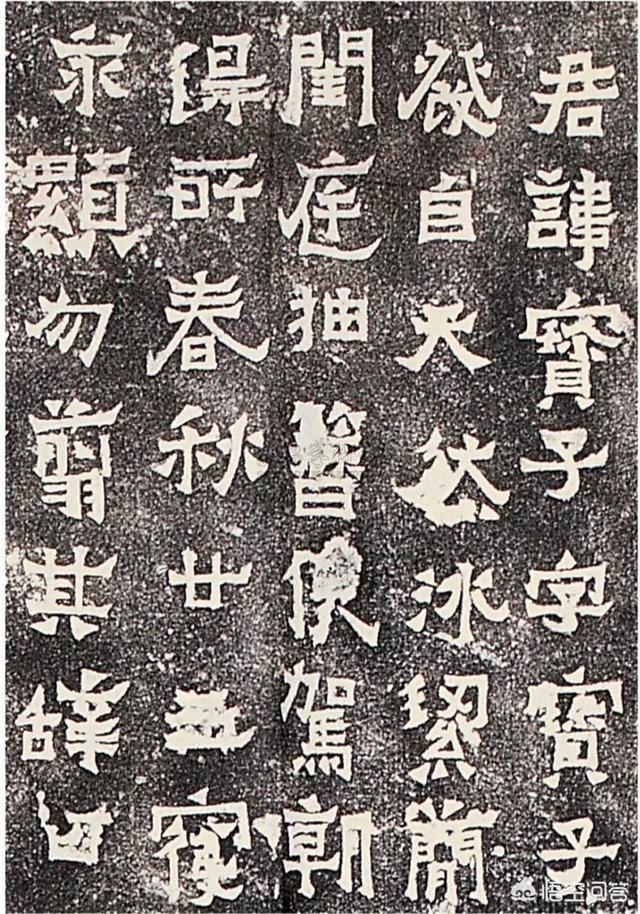 君諱寶子字寶子
發自天然冰絜簡
閨庭抽簪俟駕朝
得所春秋廿五寢
永顯勿翦其辭曰
悟空问答